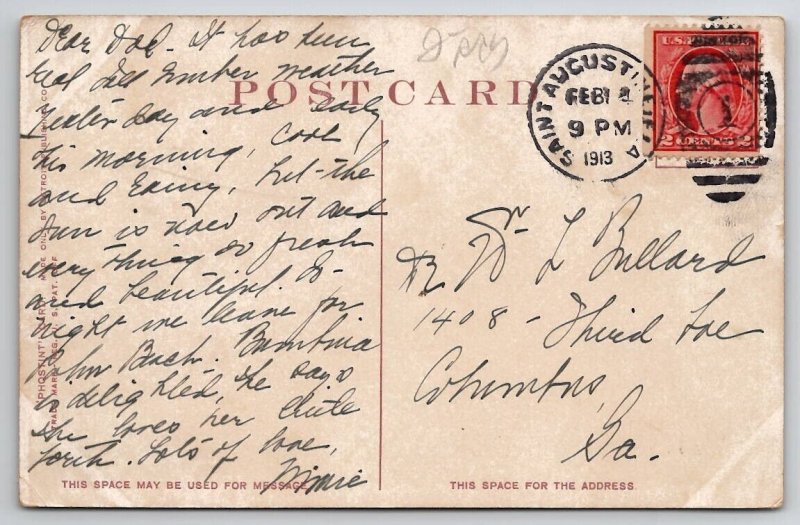 Dear Doc - It has been
real Dec Ember weather
yester day and early
this morning, cool
and rainy, but - the
sun is now out and
every thing so fresh
and beautiful. To-
night we leave for
Palm Beach.
is delighted, she says
she loves her
Lots of love,
Minnie
POST CARD
SAINT AUGUSTINE
FEB
9 PM
1913
FLA
2 CENTS 2
Dr W L Bullard
1408 - Third Ave
Columbus,
Ga.
"PHOSTINT" CARD MADE ONLY BY DETROIT PUBLISHING CO.
TRADE MARK REG. U. S. PAT. OFF.
THIS SPACE MAY BE USED FOR MESSAGE
THIS SPACE FOR THE ADDRESS